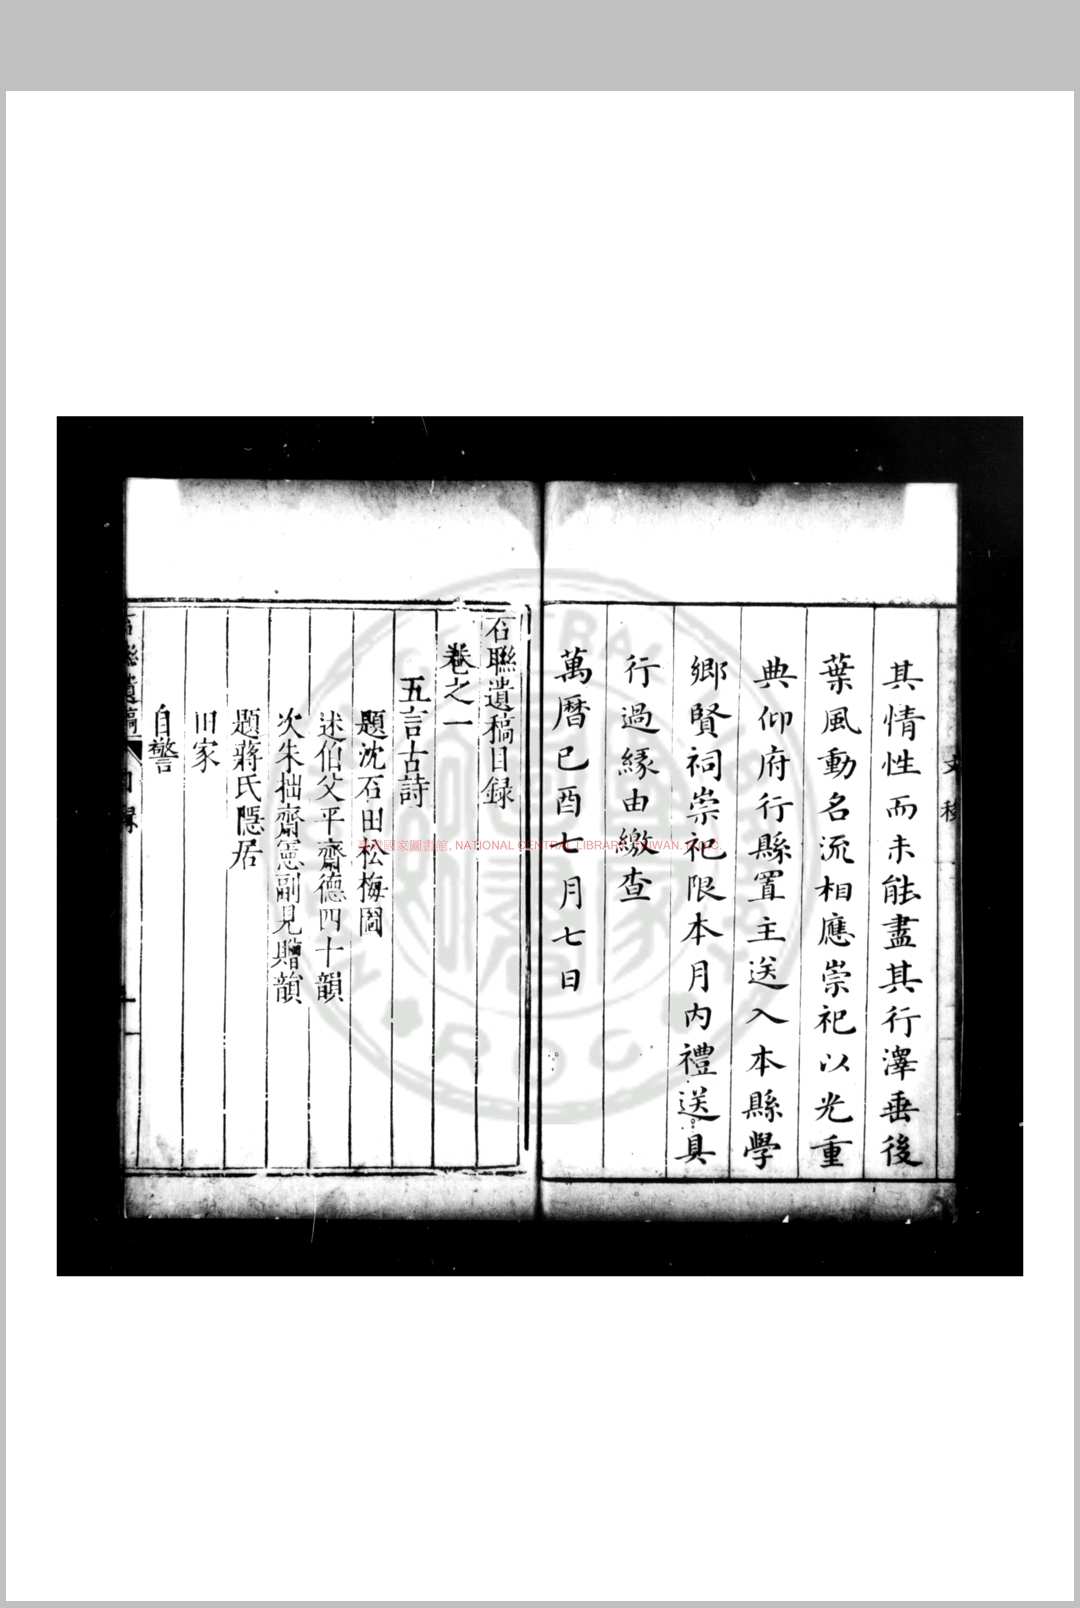 文移
其情性而未能盡其行澤垂後
葉風動名流相應崇祀以光重
典仰府行縣置主送入本縣學
鄉賢祠崇祀限本月內禮送具
行過緣由繳查
萬曆巳酉七月七日
石聯遺稿目録
卷之一
五言古詩
題沈石田松梅圖
述伯父平齋德四十韻
次朱拙齋憲副見贈韻
題蔣氏隱居
旧家
自警
石聯遺稿
目録
國家圖書館, NATIONAL CENTRAL LIBRARY, TAIWAN, R.O.C.